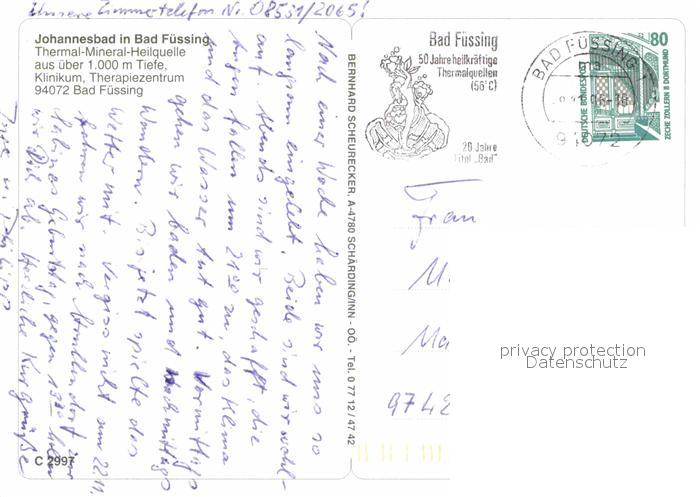 Unsere Zimmertelefon Nr. 08531/2065!
Johannesbad in Bad Füssing
Thermal-Mineral-Heilquelle
aus über 1.000 m Tiefe,
Klinikum, Therapiezentrum
94072 Bad Füssing
Nach einer Woche haben wir uns so
langsam eingelebt. Beide sind wir wohl-
auf. Abends sind wir geschafft, die
Augen fallen um 21 00 zu, das Klima
und das Wasser tut gut. Vormittags
gehen wir baden und Nachmittags
Wandern. Bis jetzt spielte das
Wetter mit. Vergiss nicht am 22.11.
fahren wir nach
Geburtstag, gegen 13 30 holen
wir Dich ab. Herzliche Kurgrüße
C 2997
BERNHARD SCHEURECKER, A-4780 SCHÄRDING/INN - OÖ. - Tel. 0 77 12 / 47 42
Bad Füssing
50 Jahre heilkräftige
Thermalquellen
(56°C)
20 Jahre
Titel „Bad"
BAD FÜSSING
80
DEUTSCHE BUNDESPOST
ZECHE ZOLLERN II DORTMUND
Frau
M
Ma
9742
privacy protection
Datenschutz